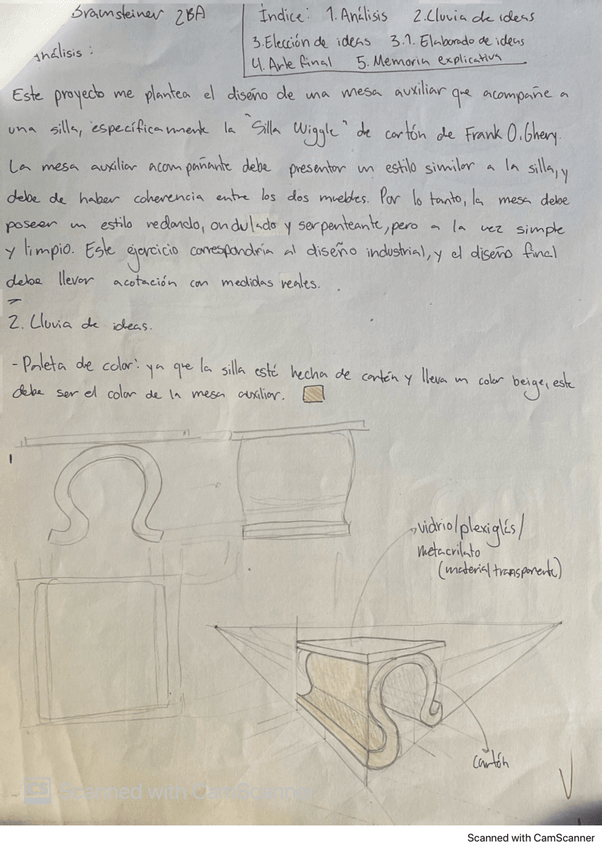 Bramsteiner 2BA
Índice: 1. Análisis 2. Lluvia de ideas
3. Elección de ideas 3.1. Elaborado de ideas
4. Arte final 5. Memoria explicativa
Análisis:
Este proyecto me plantea el diseño de una mesa auxiliar que acompañe a
una silla, específicamente la "Silla Wiggle" de cartón de Frank O. Ghery.
La mesa auxiliar acompañante debe presentar un estilo similar a la silla, y
debe de haber coherencia entre los dos muebles. Por lo tanto, la mesa debe
poseer un estilo redondo, ondulado y serpenteante, pero a la vez simple
y limpio. Este ejercicio correspondría al diseño industrial, y el diseño final
debe llevar acotación con medidas reales.
2. Lluvia de ideas.
- Paleta de color: ya que la silla esté hecha de cartón y lleva un color beige, este
debe ser el color de la mesa auxiliar.
vidrio/plexiglás/
metacrilato
(material transparente)
cartón
CS Scanned with CamScanner
Scanned with CamScanner